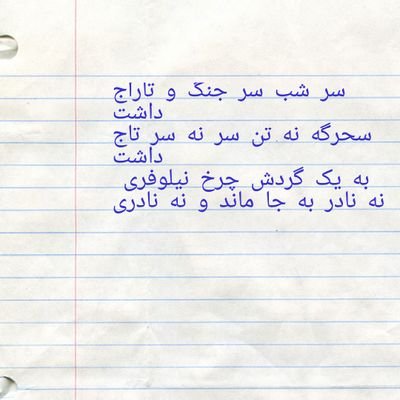 سر شب سر جنگ و تاراج
داشت
سحرگه نه تن سر نه سر تاج
داشت
به یک گردش چرخ نیلوفری
نه نادر به جا ماند و نه نادری